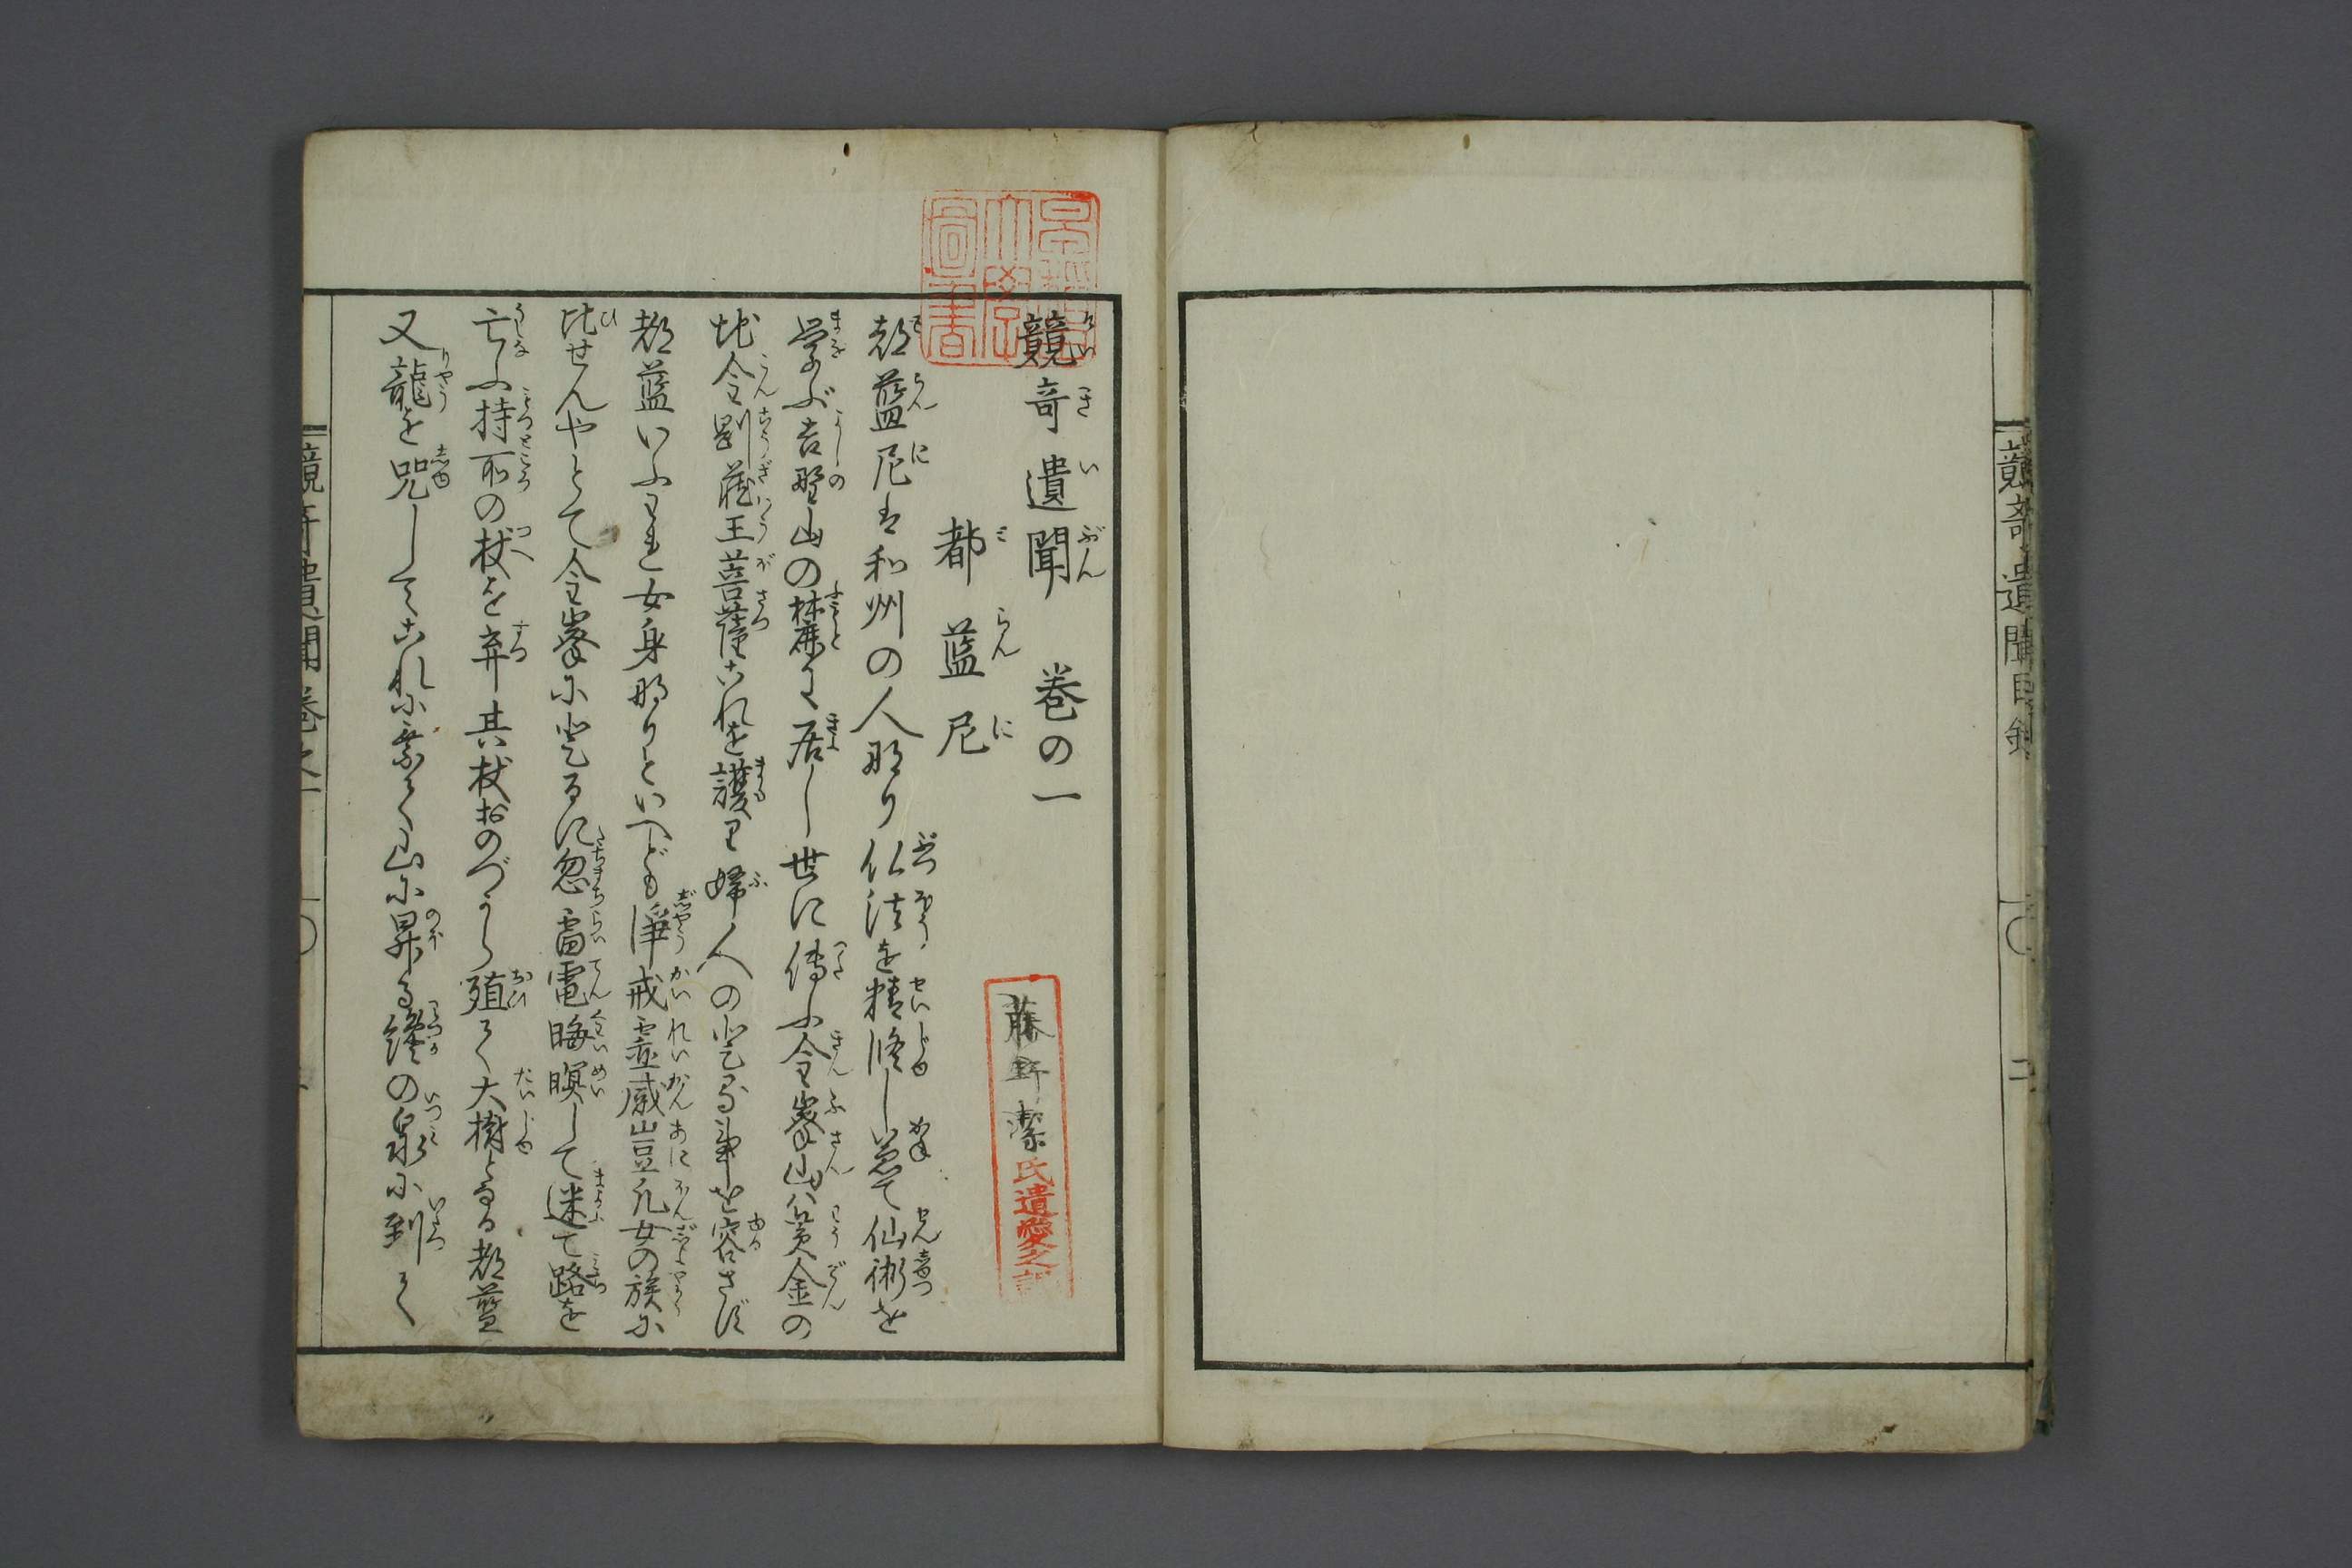 競奇遺聞目録
二
競奇遺聞　巻の一
都藍尼
都藍尼は和州の人那り仏法を精修し兼て仙術を
学ぶ吉野山の麓に居し世に傳ふ金峯山は黄金の
地金剛蔵王菩薩これを護り婦人の登る事を容さず
都藍いふわれ女身那りといへども浄戒霊感豈凡女の族に
比せんやとて金峯に登るに忽雷電晦暝して迷て路を
亡ふ持所の杖を弃其杖おのづから殖て大樹となる都藍
又龍を咒してこれに乗て山に昇る纔の泉に到て
藤野潔氏遺愛之
圖書
競奇遺聞巻之一